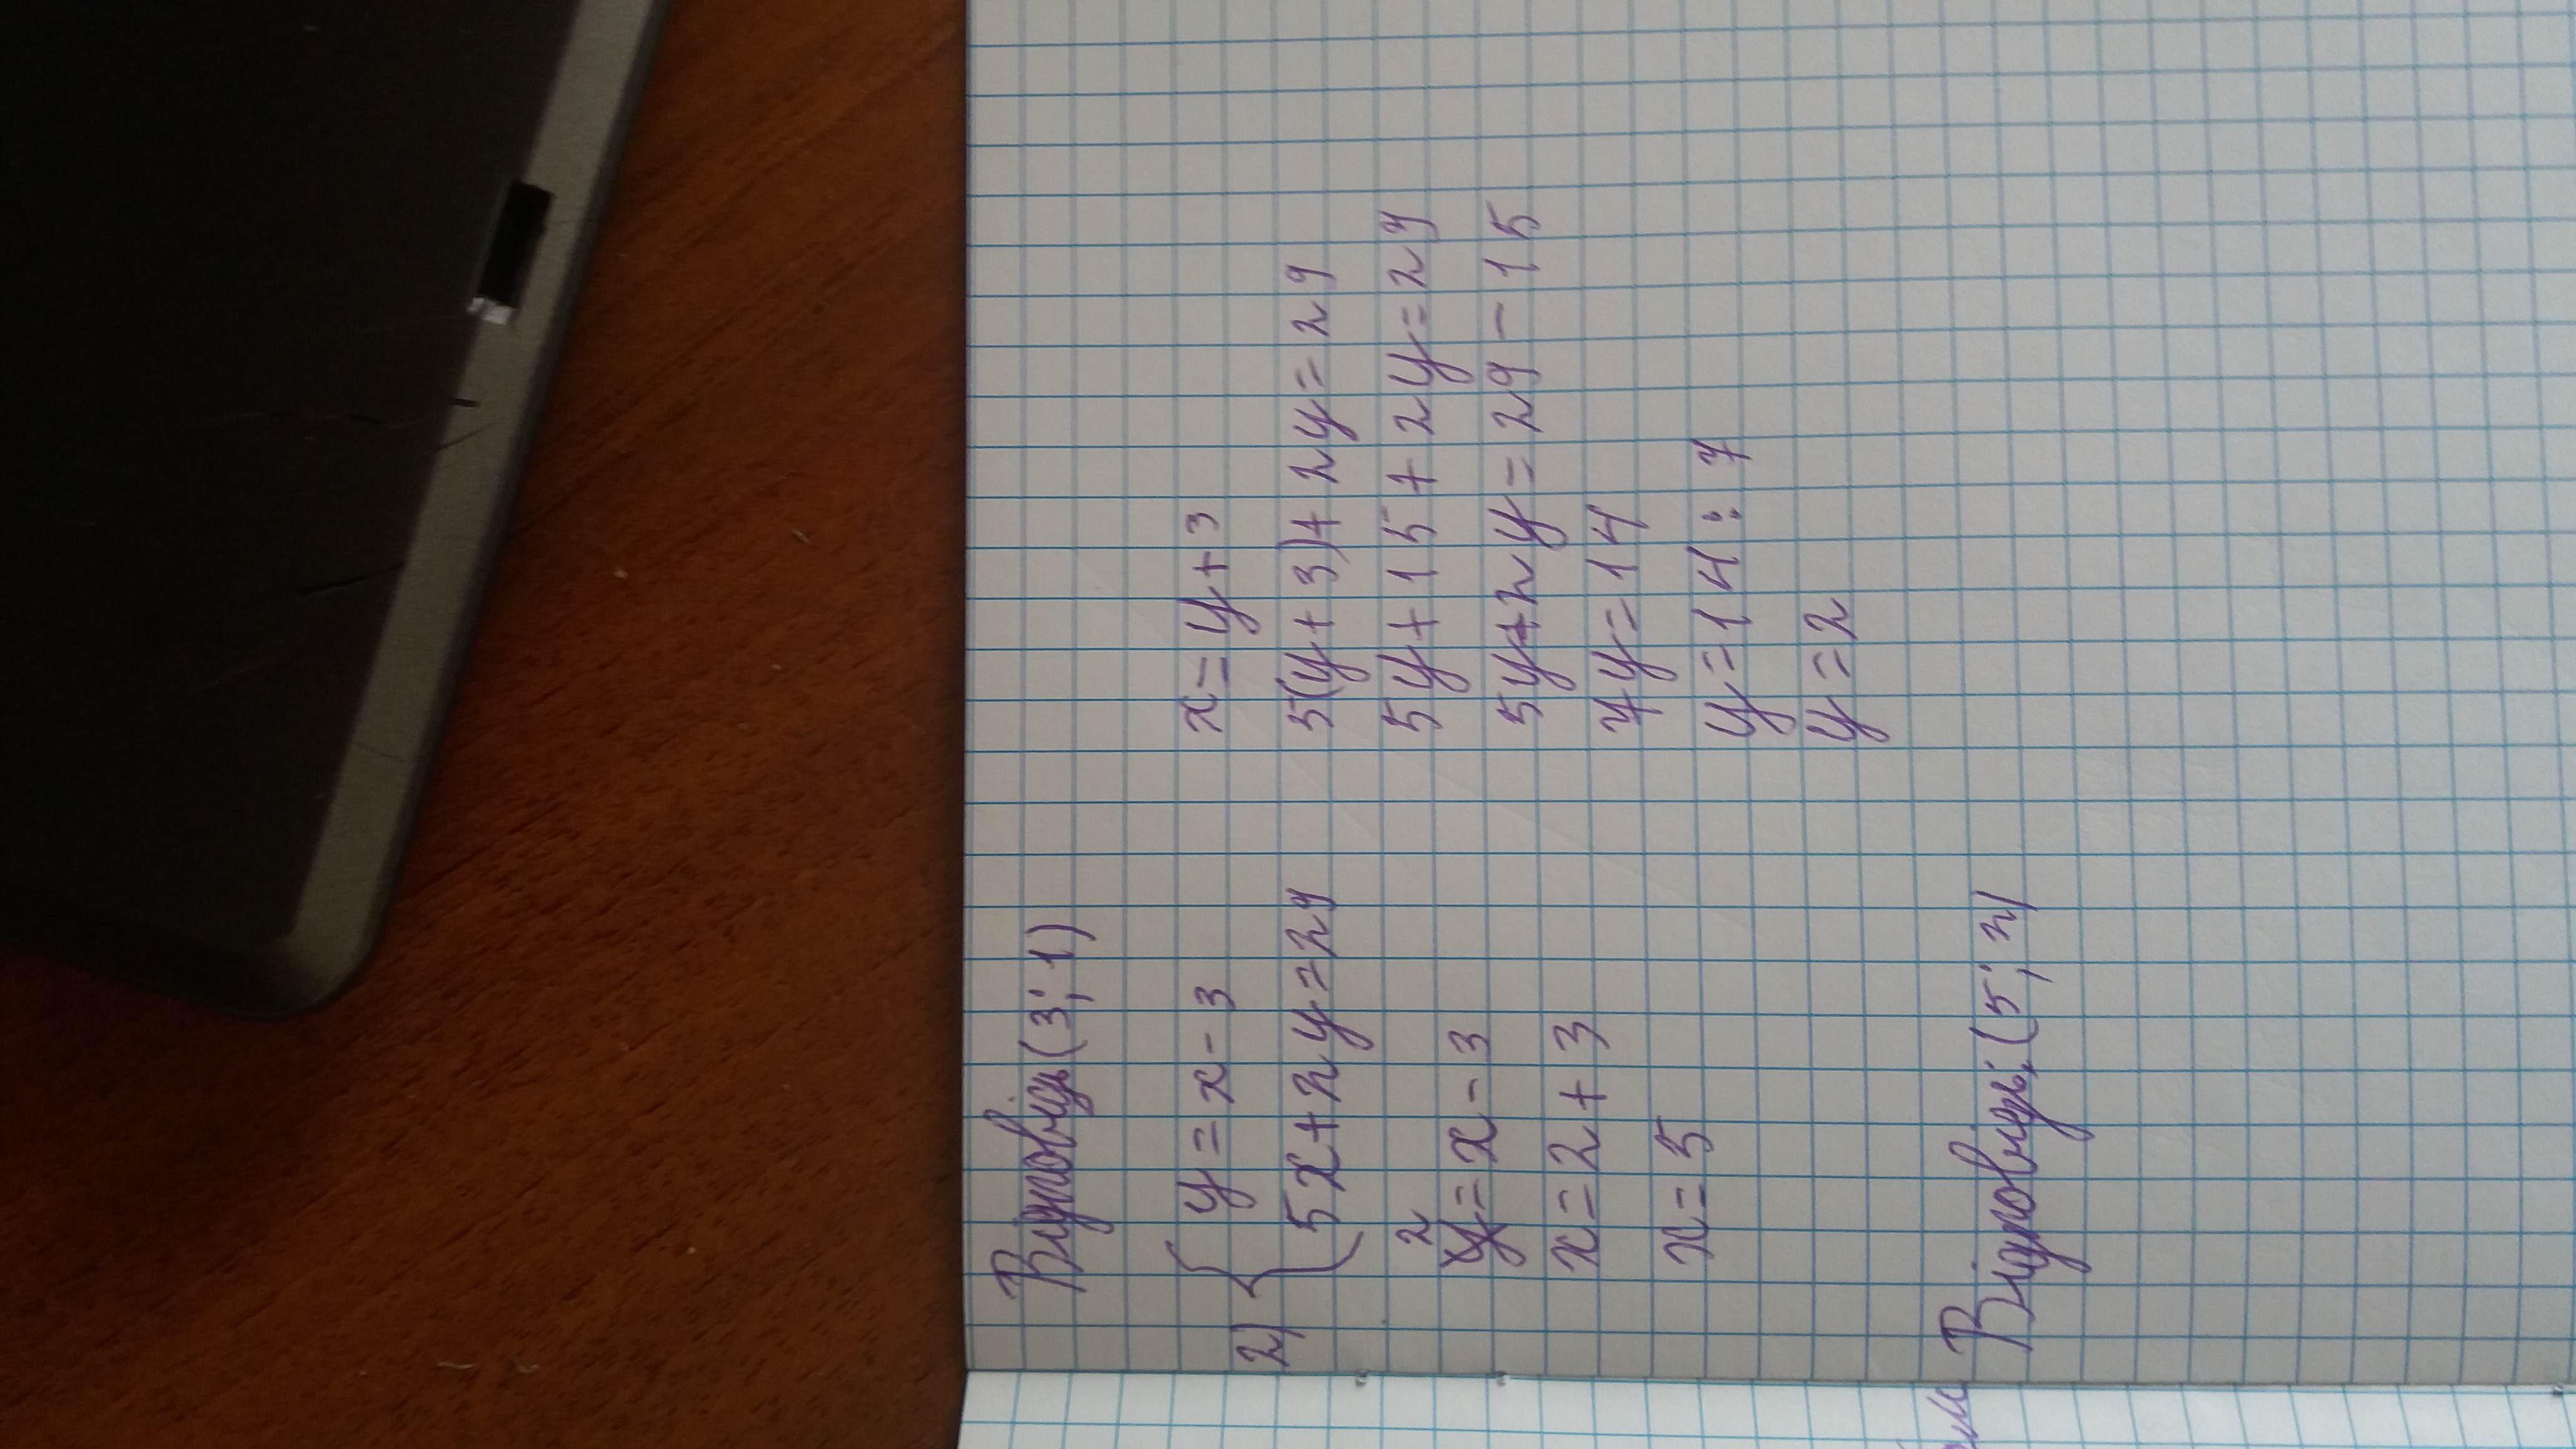 Відповідь (3; 1)
2) { y = x - 3
5x + 2y = 29
2
y = x - 3
x = 2 + 3
x = 5
x = y + 3
5(y + 3) + 2y = 29
5y + 15 + 2y = 29
5y + 2y = 29 - 15
7y = 14
y = 14 : 7
y = 2
Відповідь: (5; 2)